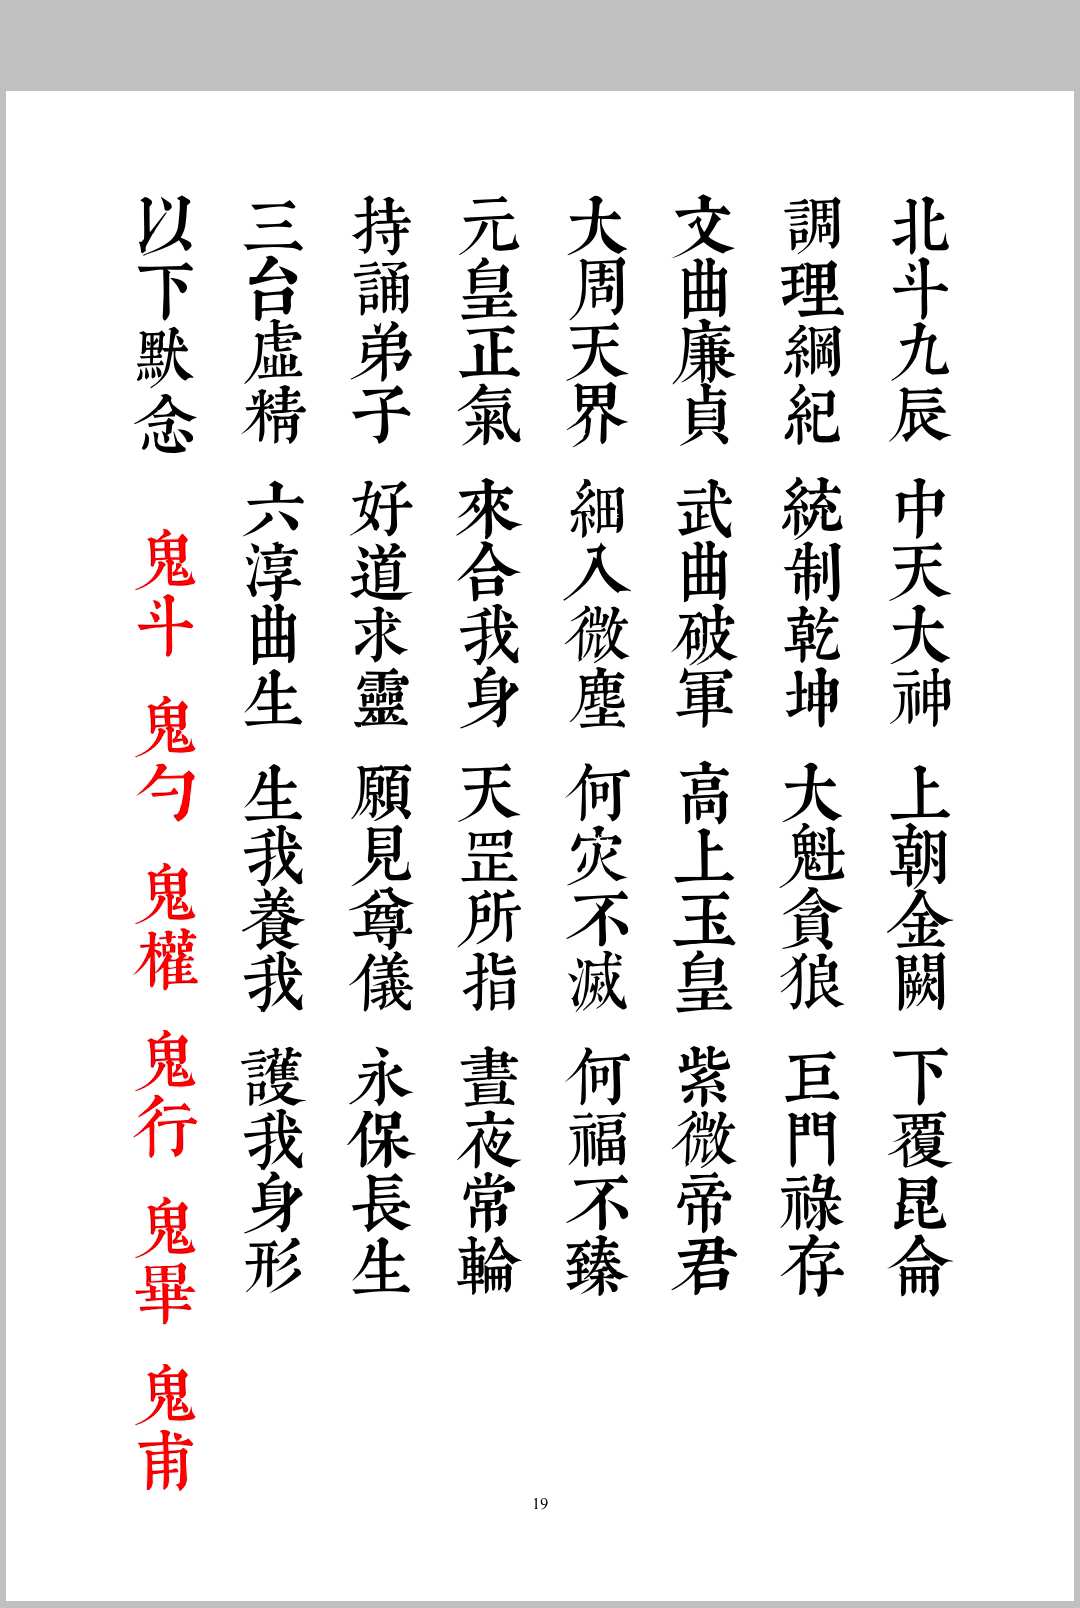 北斗九辰 中天大神 上朝金闕 下覆昆侖
調理綱紀 統制乾坤 大魁貪狼 巨門祿存
文曲廉貞 武曲破軍 高上玉皇 紫微帝君
大周天界 細入微塵 何災不滅 何福不臻
元皇正氣 來合我身 天罡所指 晝夜常輪
持誦弟子 好道求靈 願見尊儀 永保長生
三台虛精 六淳曲生 生我養我 護我身形
以下默念 鬼斗 鬼勺 鬼權 鬼行 鬼畢 鬼甫
19